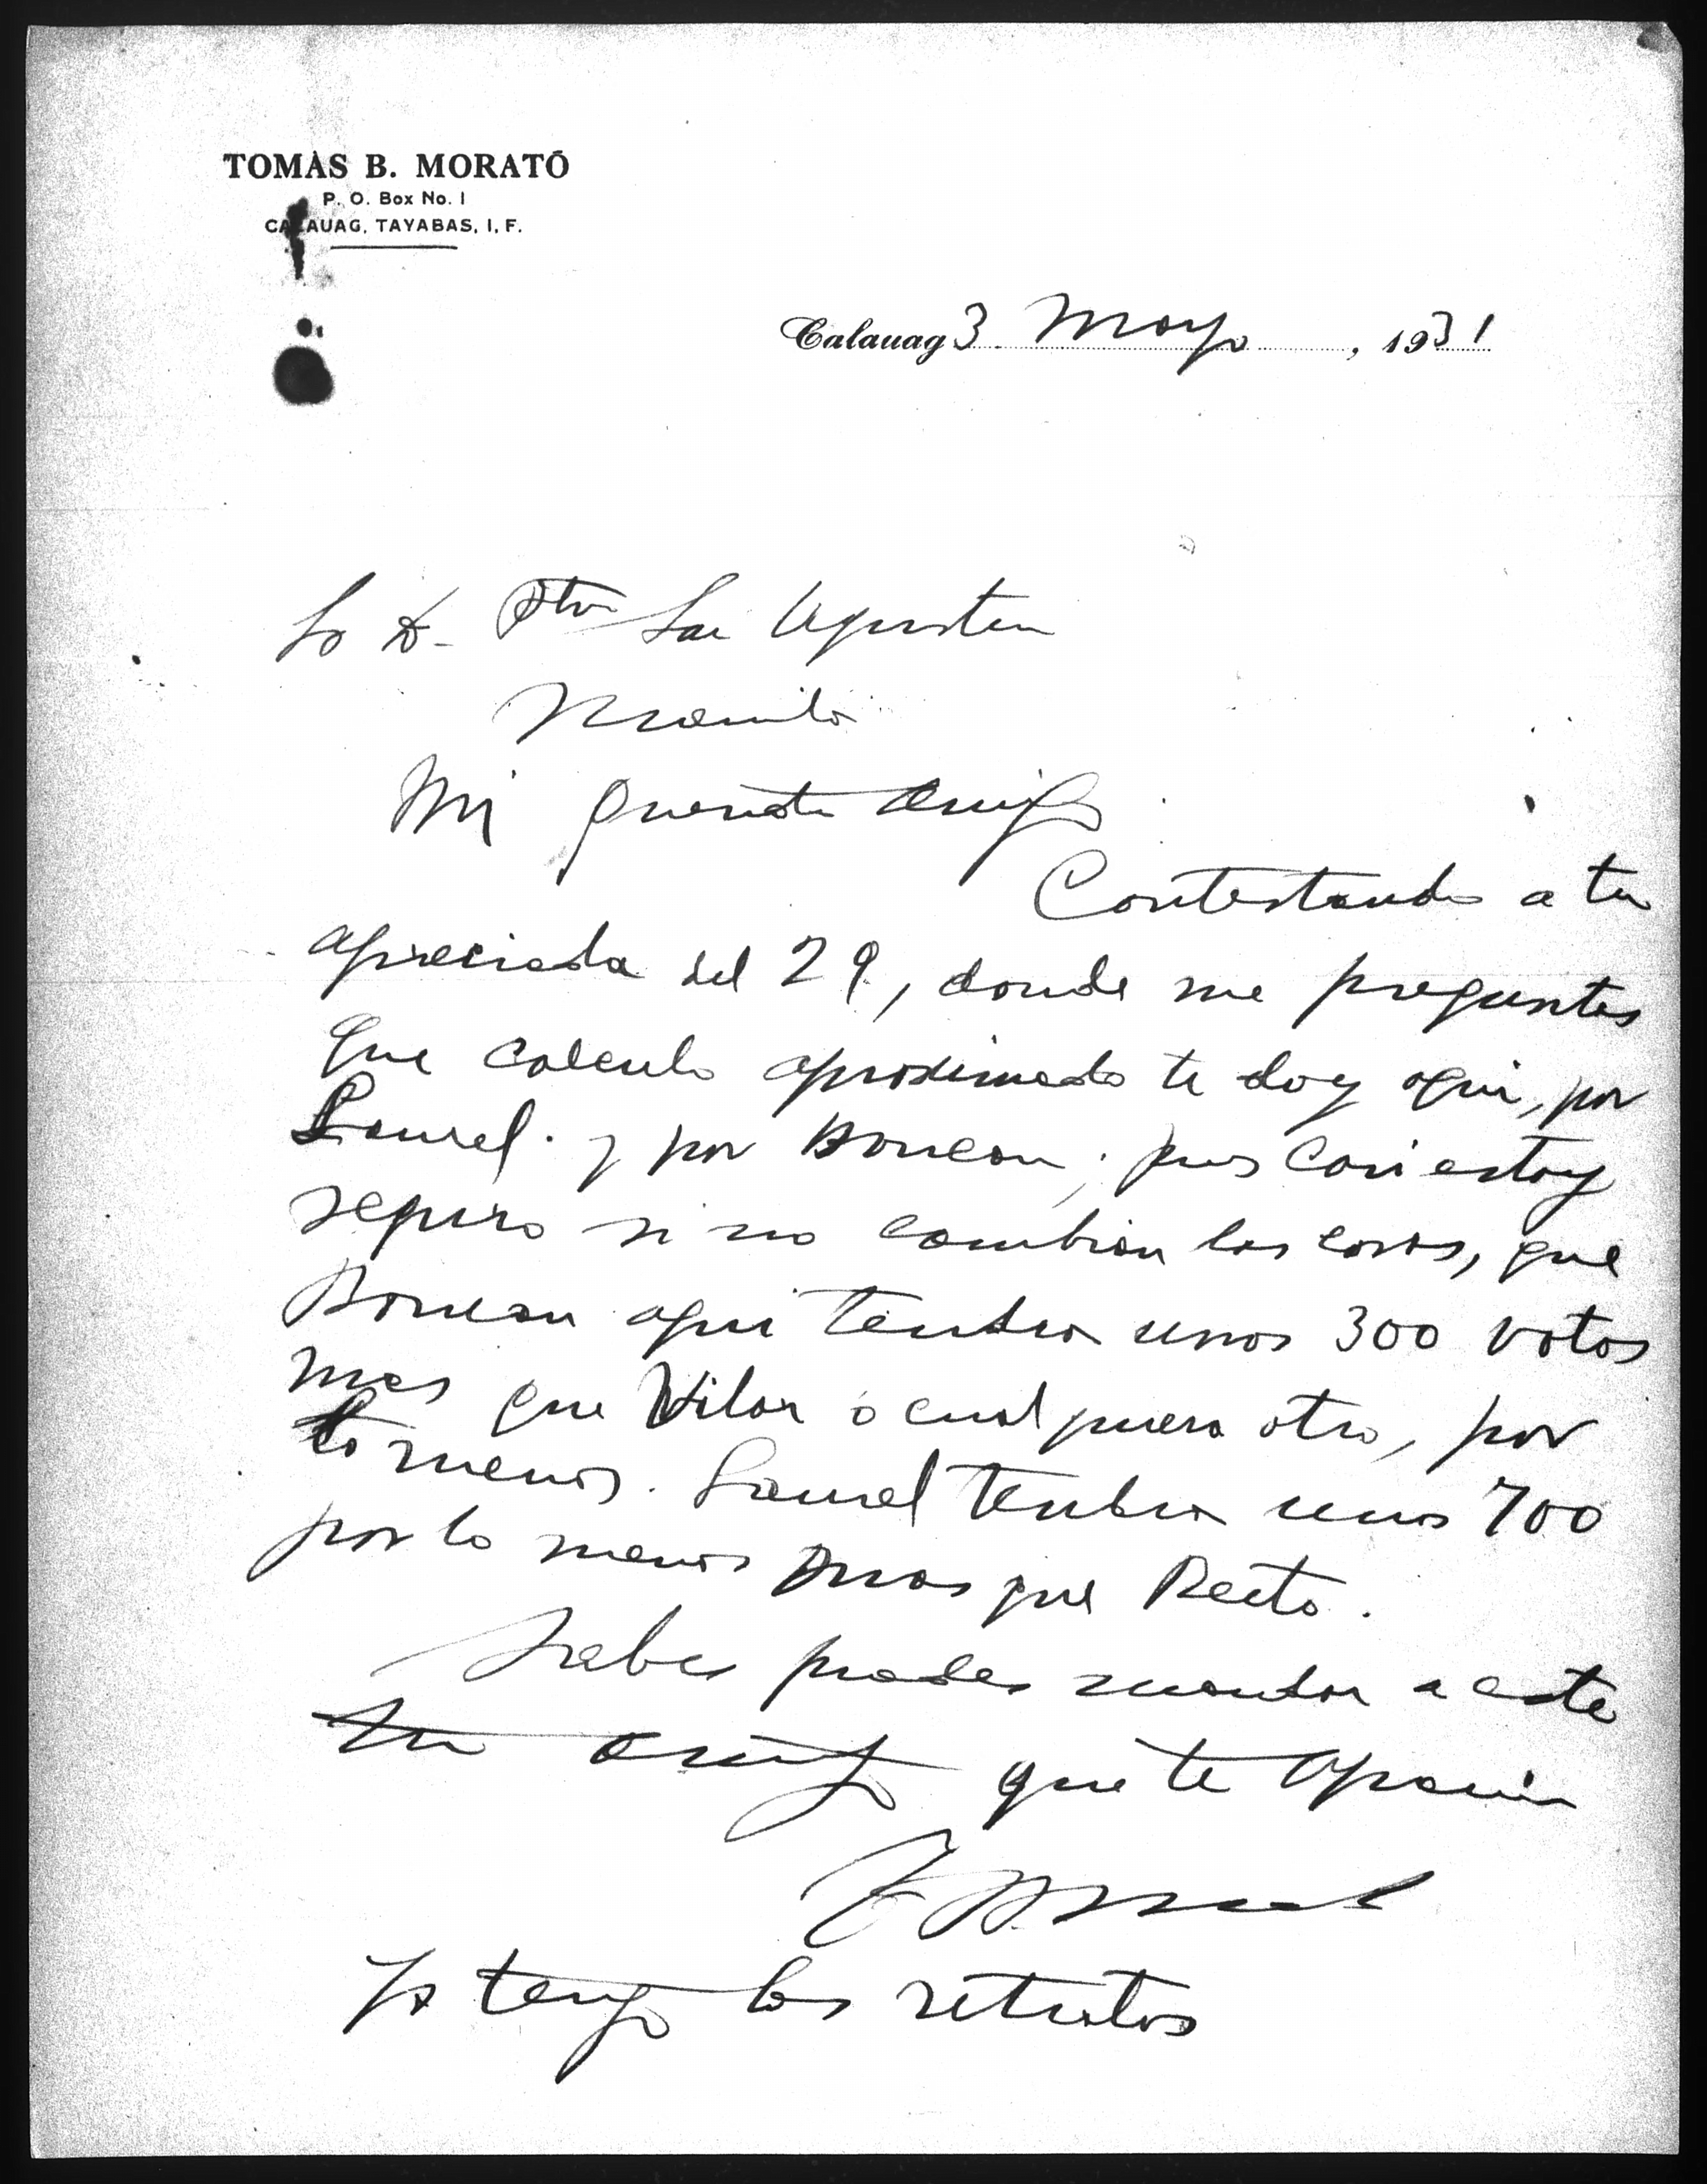 TOMÀS B. MORATÓ
P. O. Box No. 1
CALAUAG, TAYABAS, I. F.
Calauag 3 Mayo, 1931
Sr D. Ptro San Agustin
Manila
Mi querido amigo
Contestando a tu
apreciada del 29, donde me preguntas
que calculo aproximado te doy aqui, por
Laurel y por Boncan; pues casi estoy
seguro si no cambian las cosas, que
Boncan aqui tendra unos 300 votos
mas que Vilar ó cualquiera otro, por
lo menos. Laurel tendra unos 700
por lo menos mas que Recto.
Sabes puedes mandar a este
tu amigo que te aprecia
Ya tengo los retratos